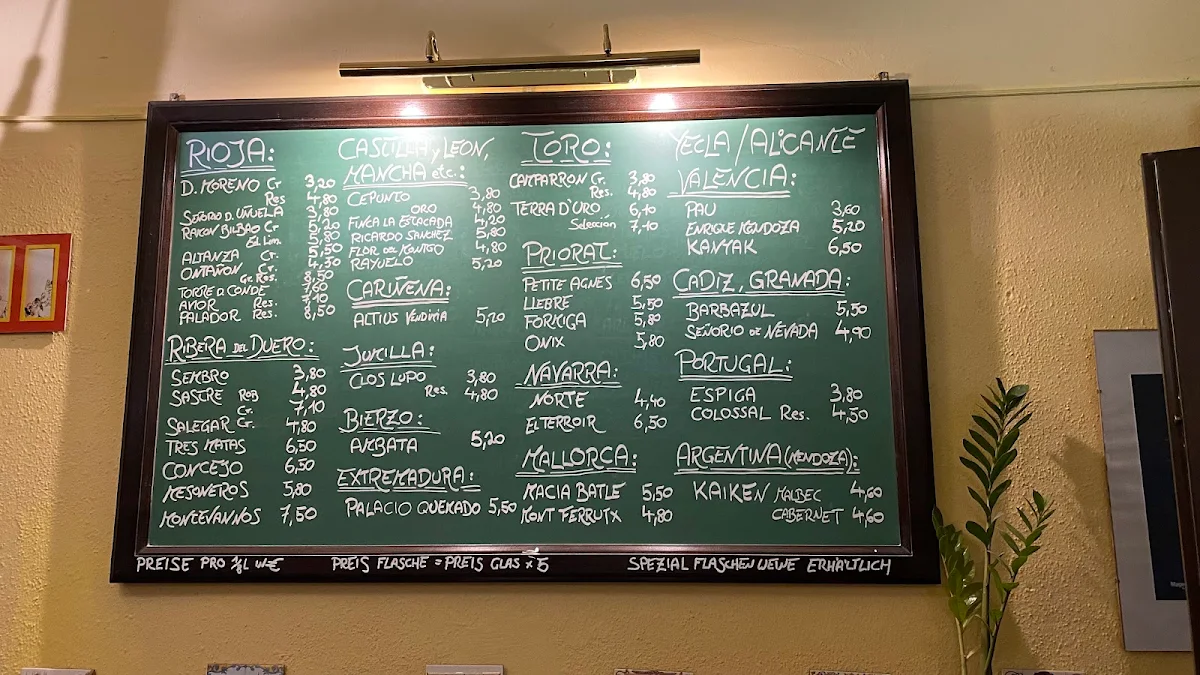 RIOJA:
D. MORENO Cr 3,20
Res 4,80
SEÑORIO D. UÑUELA 3,80
RAMON BILBAO Cr 5,20
Ed Lim. 5,80
ALTANZA Cr. 5,50
ONTAÑON Cr. 4,50
Gr. Res. 8,50
TORRE D. CONDE 7,60
AVIOR Res. 7,10
PALADOR Res. 8,50
RIBERA DEL DUERO:
SEMBRO 3,80
SASTRE ROB 4,80
Cr. 7,10
SALEGAR Cr. 4,80
TRES MATAS 6,50
CONCEJO 6,50
MESONEROS 5,80
MONTEVANNOS 7,50
CASTILLA Y LEON,
MANCHA etc.:
CEPUNTO 3,80
ORO 4,80
FINCA LA ESTACADA 4,20
RICARDO SANCHEZ 5,80
FLOR DEL MONTGO 4,80
RAYUELO 5,20
CARIÑENA:
ALTIUS VENDIMIA 5,20
JUMILLA:
CLOS LUPO 3,80
Res. 4,80
BIERZO:
AMBATA 5,20
EXTREMADURA:
PALACIO QUEMADO 5,50
TORO:
CAMPARRON Cr. 3,80
Res. 4,80
TERRA D'URO 6,10
Selección 7,10
PRIORAT:
PETITE AGNES 6,50
LLEBRE 5,50
FORMIGA 5,80
ONIX 5,80
NAVARRA:
NORTE 4,40
EL TERROIR 6,50
MALLORCA:
MACIA BATLE 5,50
MONT FERRUTX 4,80
YECLA / ALICANTE
VALENCIA:
PAU 3,60
ENRIQUE MENDOZA 5,20
KANYAK 6,50
CADIZ, GRANADA:
BARBAZUL 5,50
SEÑORIO DE NEVADA 4,90
PORTUGAL:
ESPIGA 3,80
COLOSSAL Res. 4,50
ARGENTINA (MENDOZA):
KAIKEN MALBEC 4,60
CABERNET 4,60
PREISE PRO 2/gL in €
PREIS FLASCHE = PREIS GLAS x 5
SPEZIAL FLASCHENWEINE ERHÄLTLICH